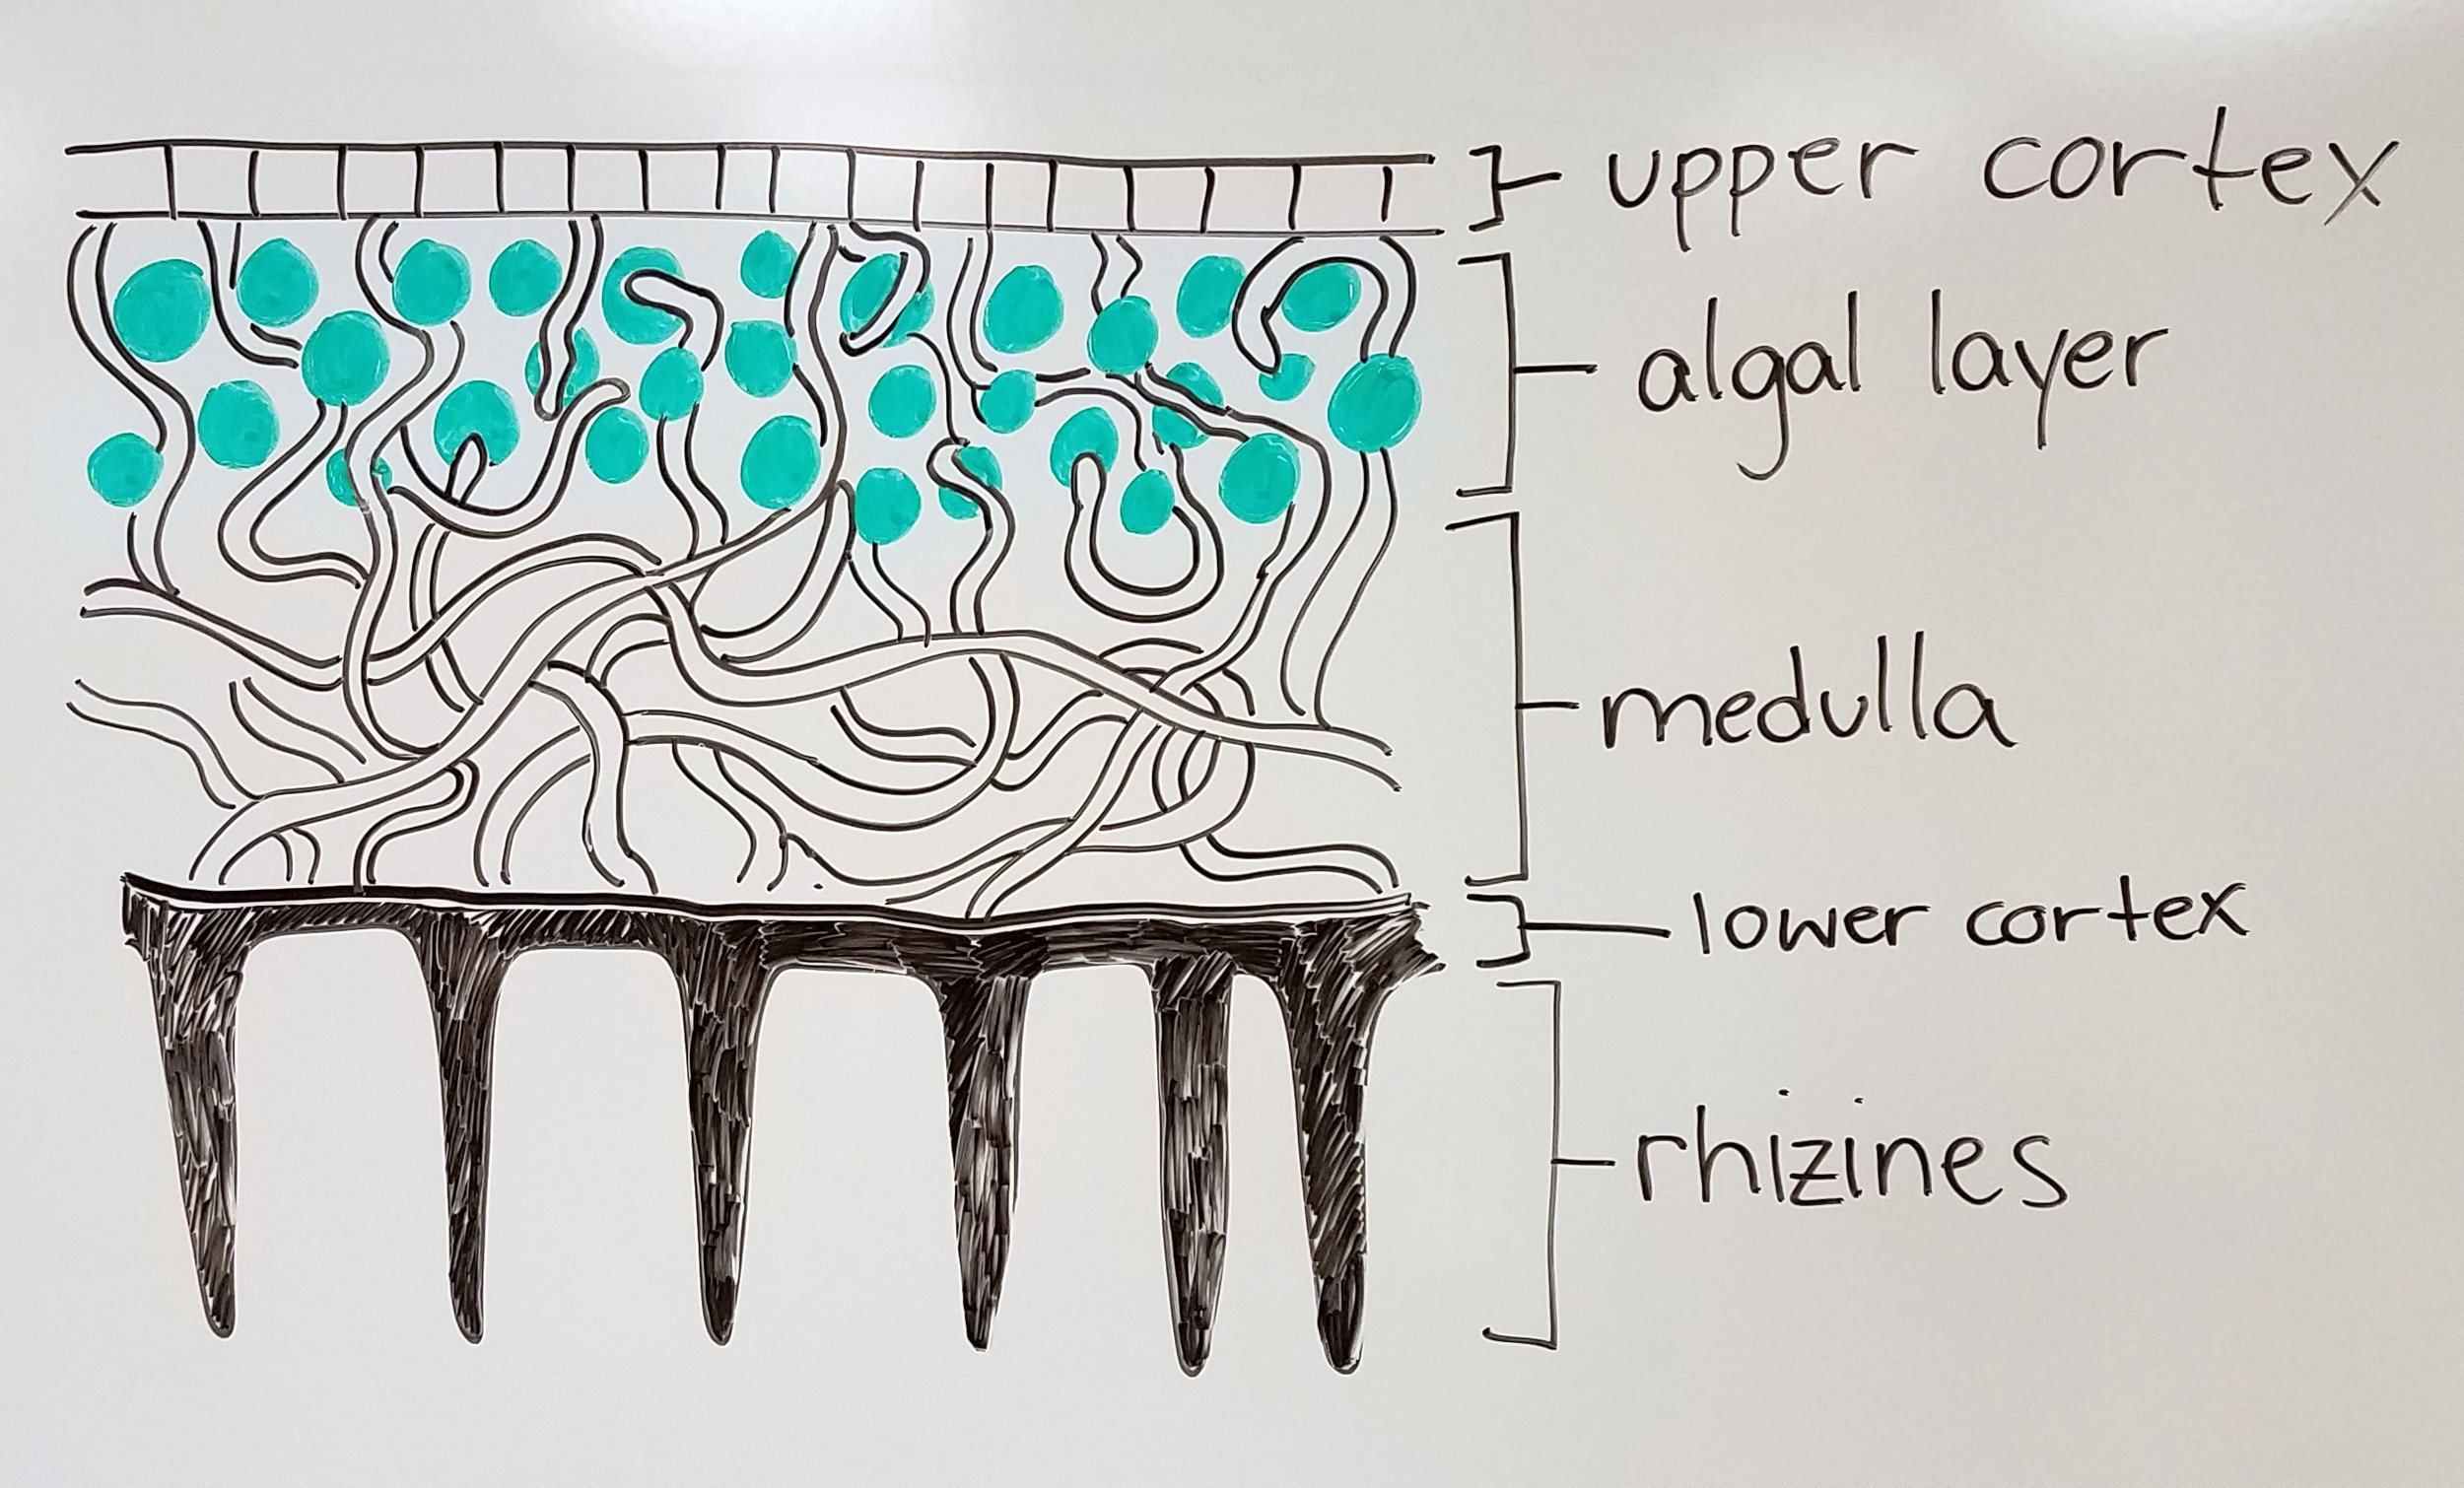 upper cortex
algal layer
medulla
lower cortex
rhizines